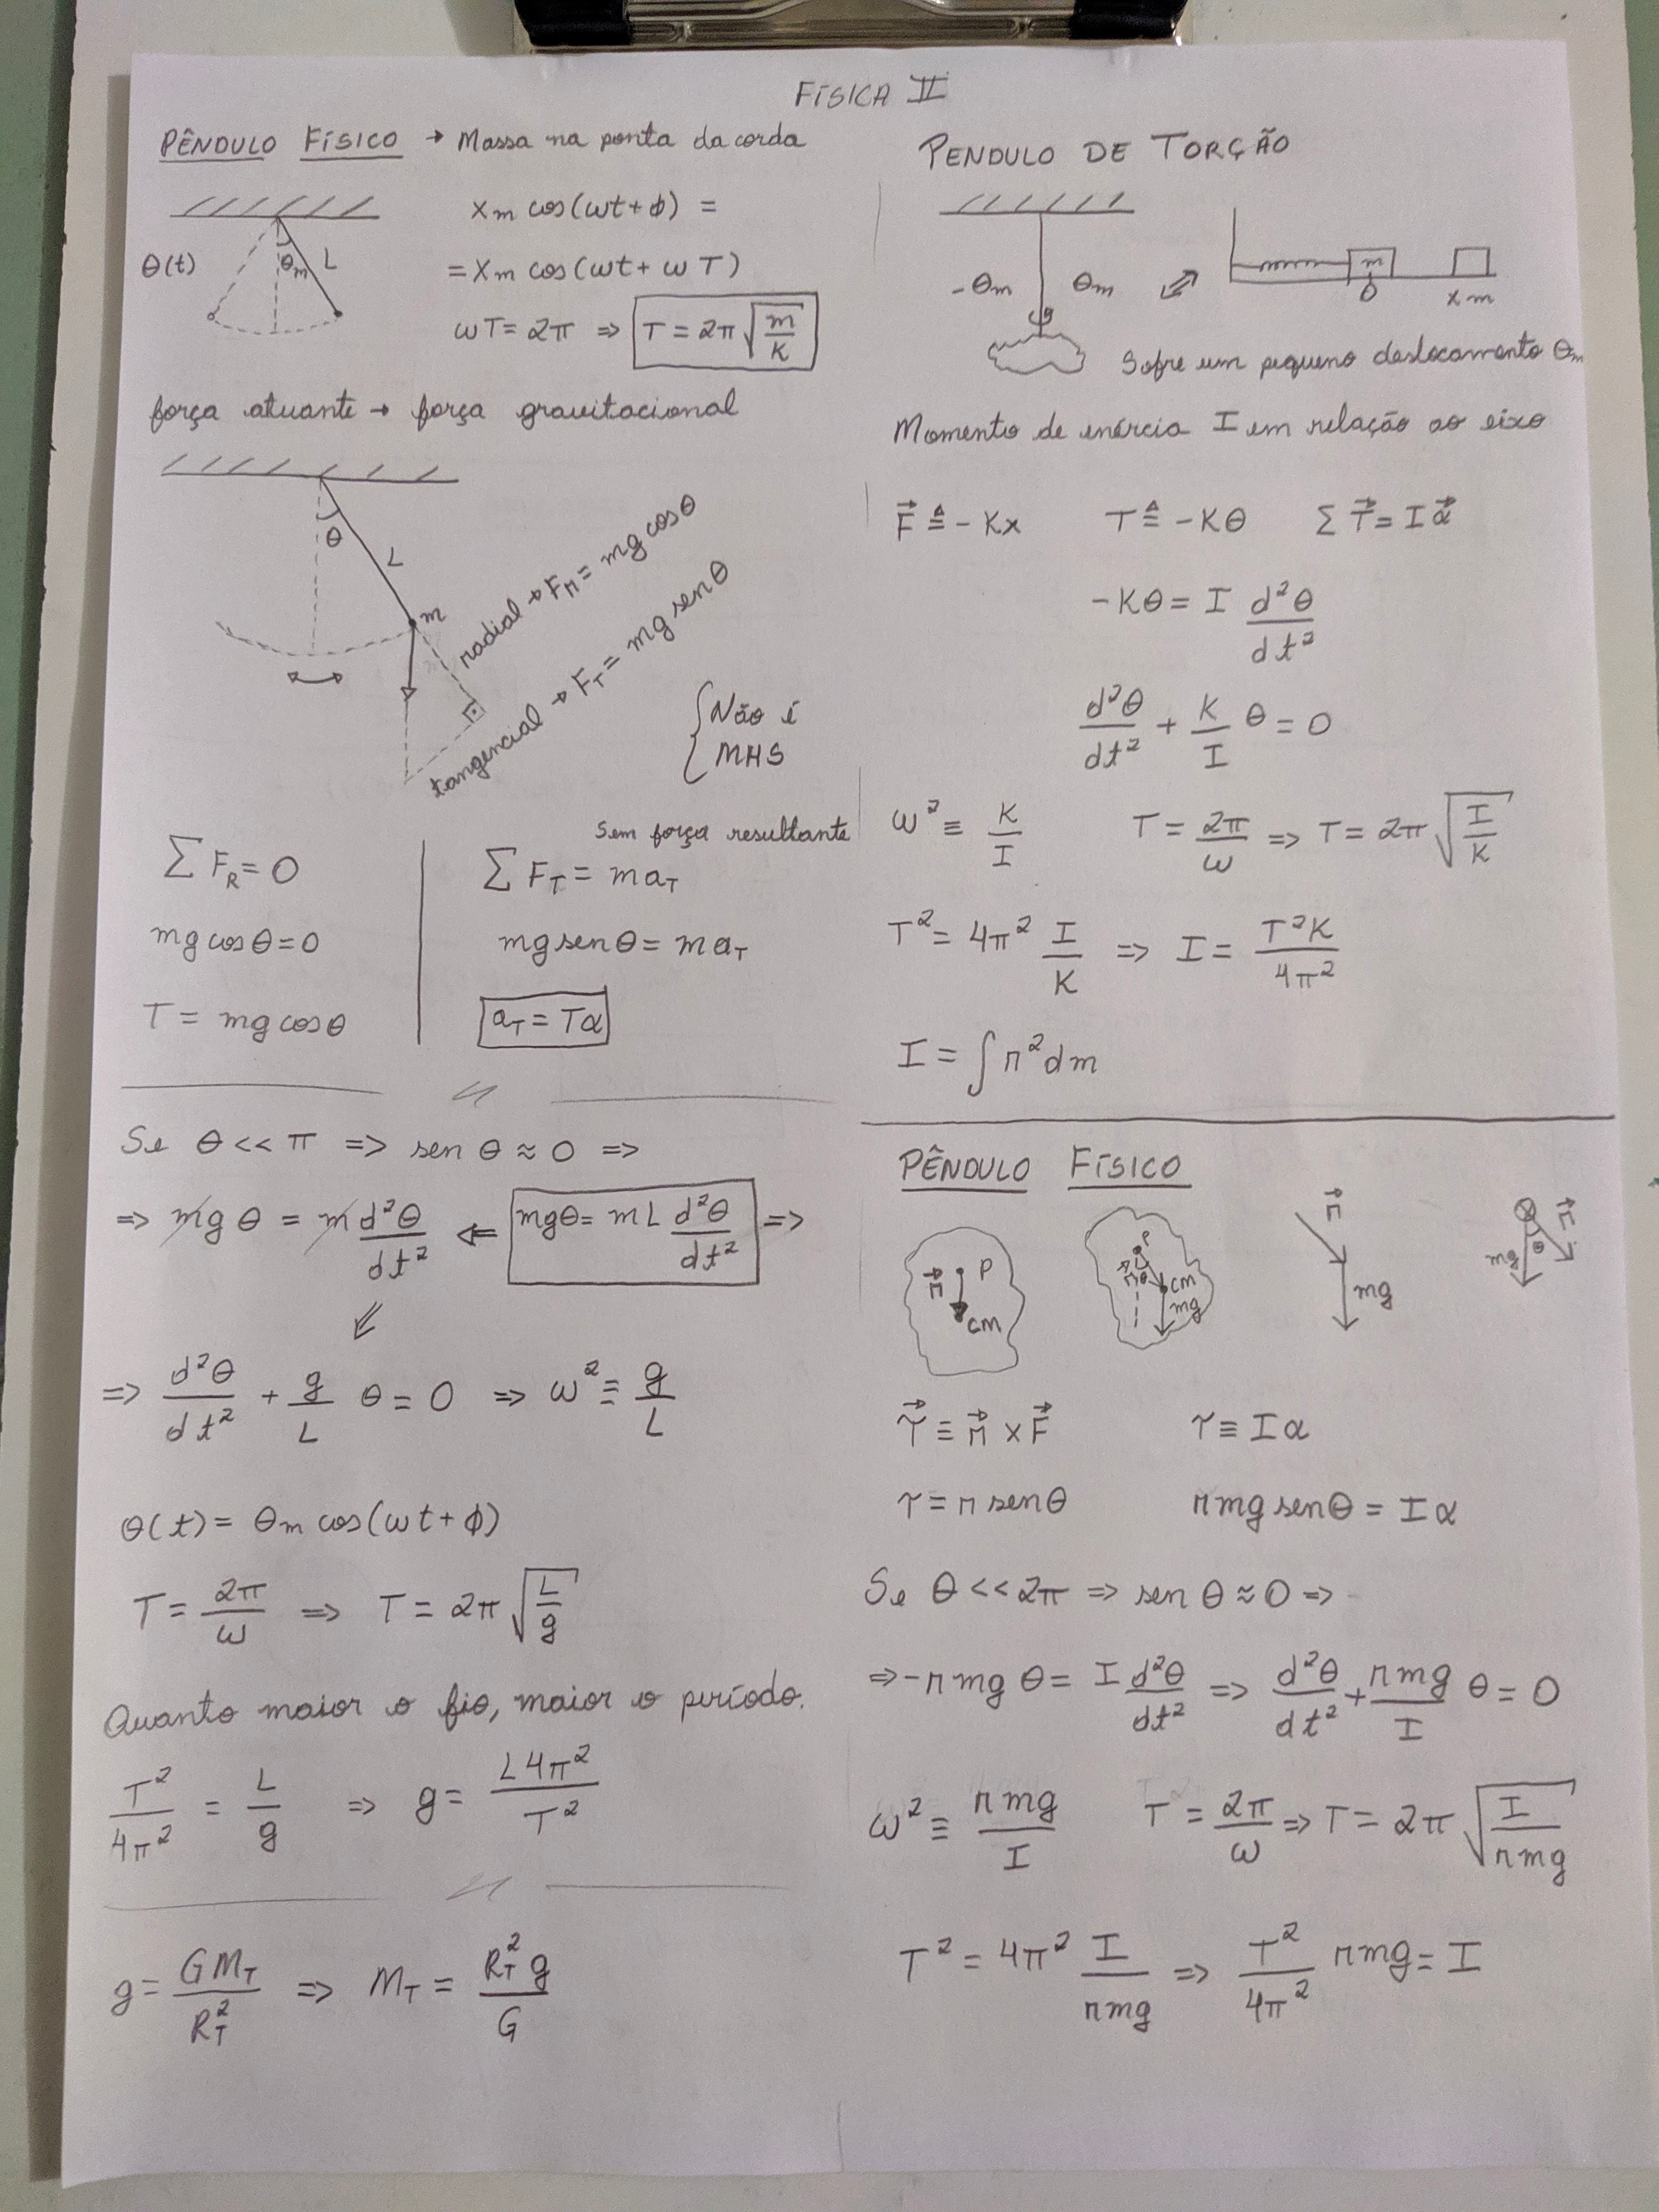 FÍSICA II
PÊNDULO FÍSICO → Massa na ponta da corda
θ(t)
θm
L
xm cos(ωt+ϕ) =
= xm cos(ωt + ωT)
ωT = 2π ⇒ T = 2π√(m/K)
força atuante → força gravitacional
θ
L
m
radial → Fr = mg cosθ
tangencial → FT = mg senθ
{Não é
MHS
Sem força resultante
∑ FR = 0
mg cos θ = 0
T = mg cos θ
∑ FT = m aT
mg sen θ = m aT
aT = Tα
Se θ << π ⇒ sen θ ≈ 0 ⇒
⇒ mg θ = m d²θ/dt² ⇐ mgθ = mL d²θ/dt² ⇒
⇒ d²θ/dt² + g/L θ = 0 ⇒ ω² ≡ g/L
θ(t) = θm cos(ωt + ϕ)
T = 2π/ω ⇒ T = 2π√(L/g)
Quanto maior o fio, maior o período.
T²/4π² = L/g ⇒ g = L4π²/T²
g = GMT/RT² ⇒ MT = RT² g/G
PENDULO DE TORÇÃO
-θm θm
m
0
xm
Sofre um pequeno deslocamento θm
Momento de enércia I em relação ao eixo
F⃗ ≜ -Kx T ≜ -Kθ Σ T⃗ = I α⃗
-Kθ = I d²θ/dt²
d²θ/dt² + K/I θ = 0
ω² ≡ K/I T = 2π/ω ⇒ T = 2π√(I/K)
T² = 4π² I/K ⇒ I = T²K/4π²
I = ∫ r² dm
PÊNDULO FÍSICO
r⃗ P
cm
P
r⃗ θ
cm
mg
r⃗
mg
r⃗
mg θ
τ⃗ ≡ r⃗ × F⃗ τ ≡ I α
τ = r senθ r mg senθ = I α
Se θ << 2π ⇒ sen θ ≈ 0 ⇒
⇒ -r mg θ = I d²θ/dt² ⇒ d²θ/dt² + r mg/I θ = 0
ω² ≡ r mg/I T = 2π/ω ⇒ T = 2π√(I/r mg)
T² = 4π² I/r mg ⇒ T²/4π² r mg = I